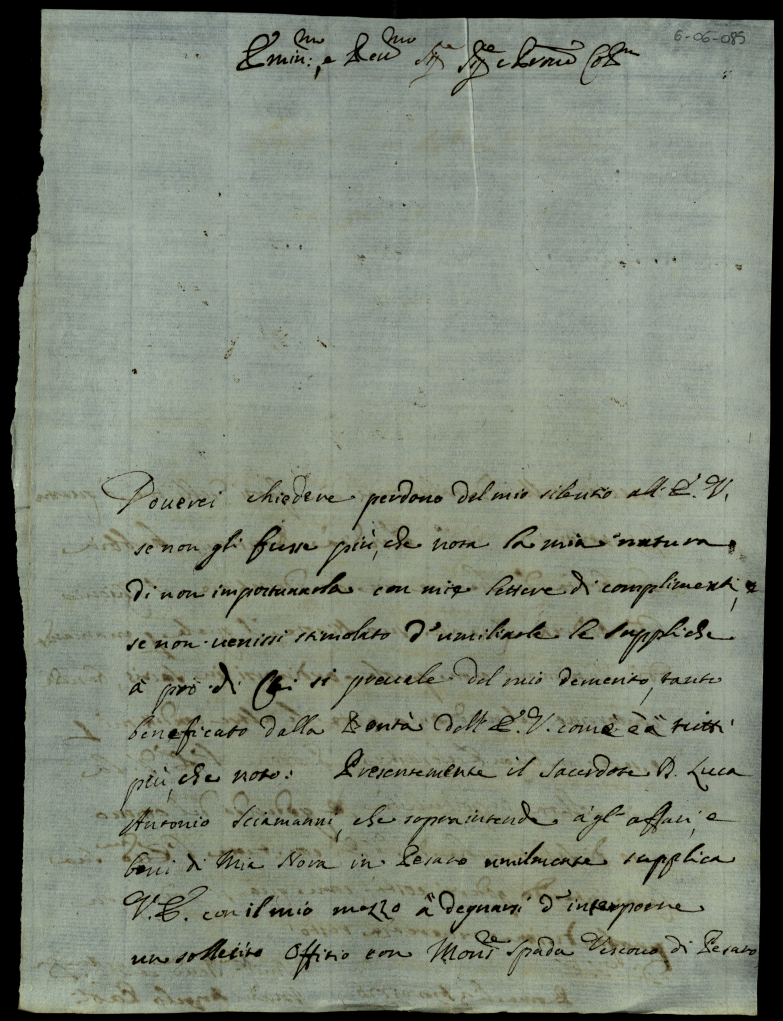 6-06-085
Emin:mo, e Reu:mo Sig.re Sig.re e Prone Col:mo
Douerei chiedere perdono del mio silentio all' E. V.
se non gli fusse più, che nota la mia natura
di non importunarla con mie lettere di complimenti, e
se non uenissi stimolato d'umiliarle le suppliche
à prò di Chi si preuale del mio demerito, tanto
beneficato dalla Bontà dell' E. V. come è à tutti
più, che noto: Presentemente il Sacerdote D. Luca
Antonio Sciamanni, che sopraintende à gl' affari, e
beni di Mia Nora in Pesaro umilmente supplica
V. E. con il mio mezzo à degnarsi d'interporne
un sollecito Offitio con Mons.re Spada Vescouo di Pesaro